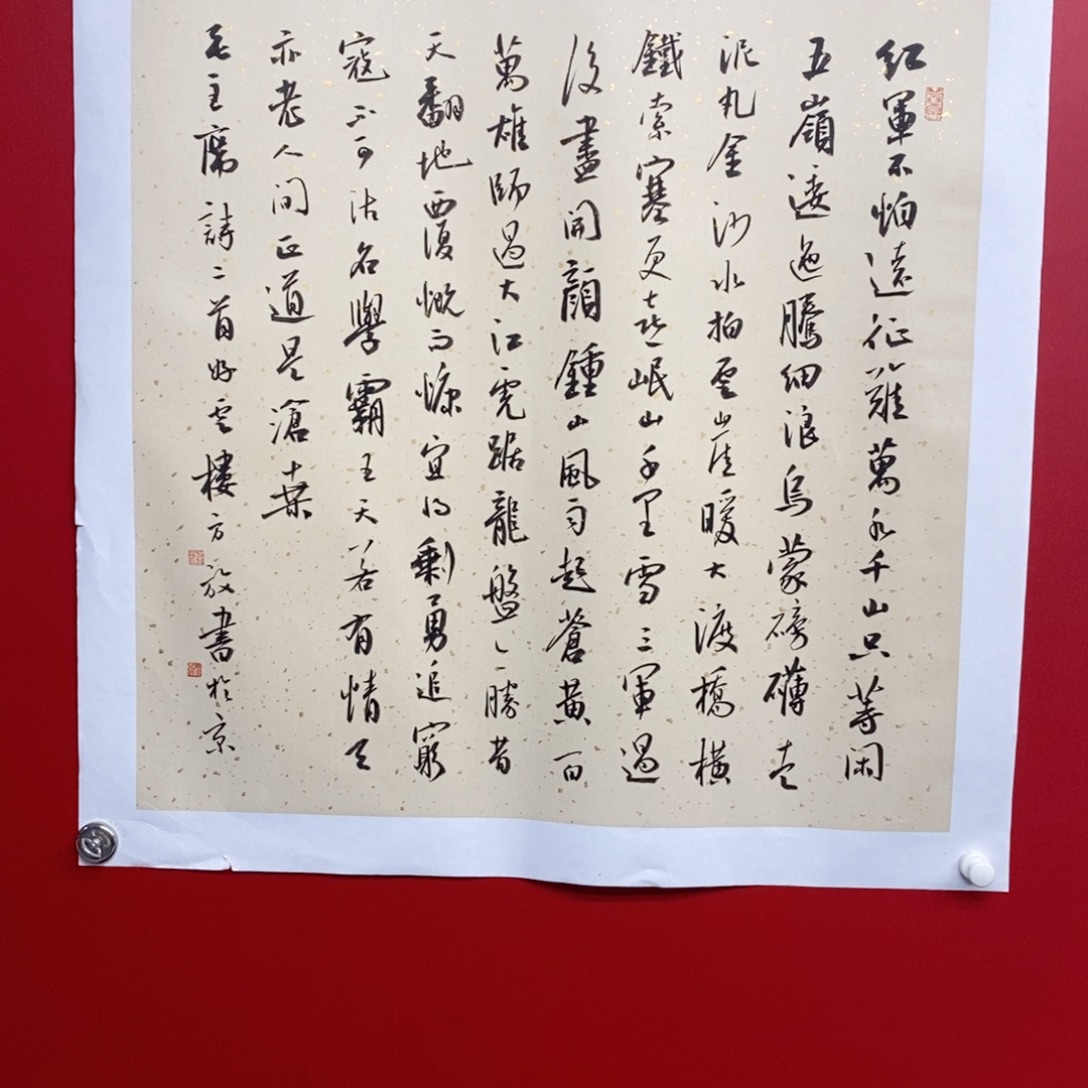 紅軍不怕遠征難萬水千山只等閑
五嶺逶迤騰細浪烏蒙磅礴走
泥丸金沙水拍雲崖暖大渡橋橫
鐵索寒更喜岷山千里雪三軍過
後盡開顏鍾山風雨起蒼黃百
萬雄師過大江虎踞龍盤今勝昔
天翻地覆慨而慷宜將剩勇追窮
寇不可沽名學霸王天若有情天
亦老人間正道是滄桒
毛主席詩二首好雲樓方放書於京